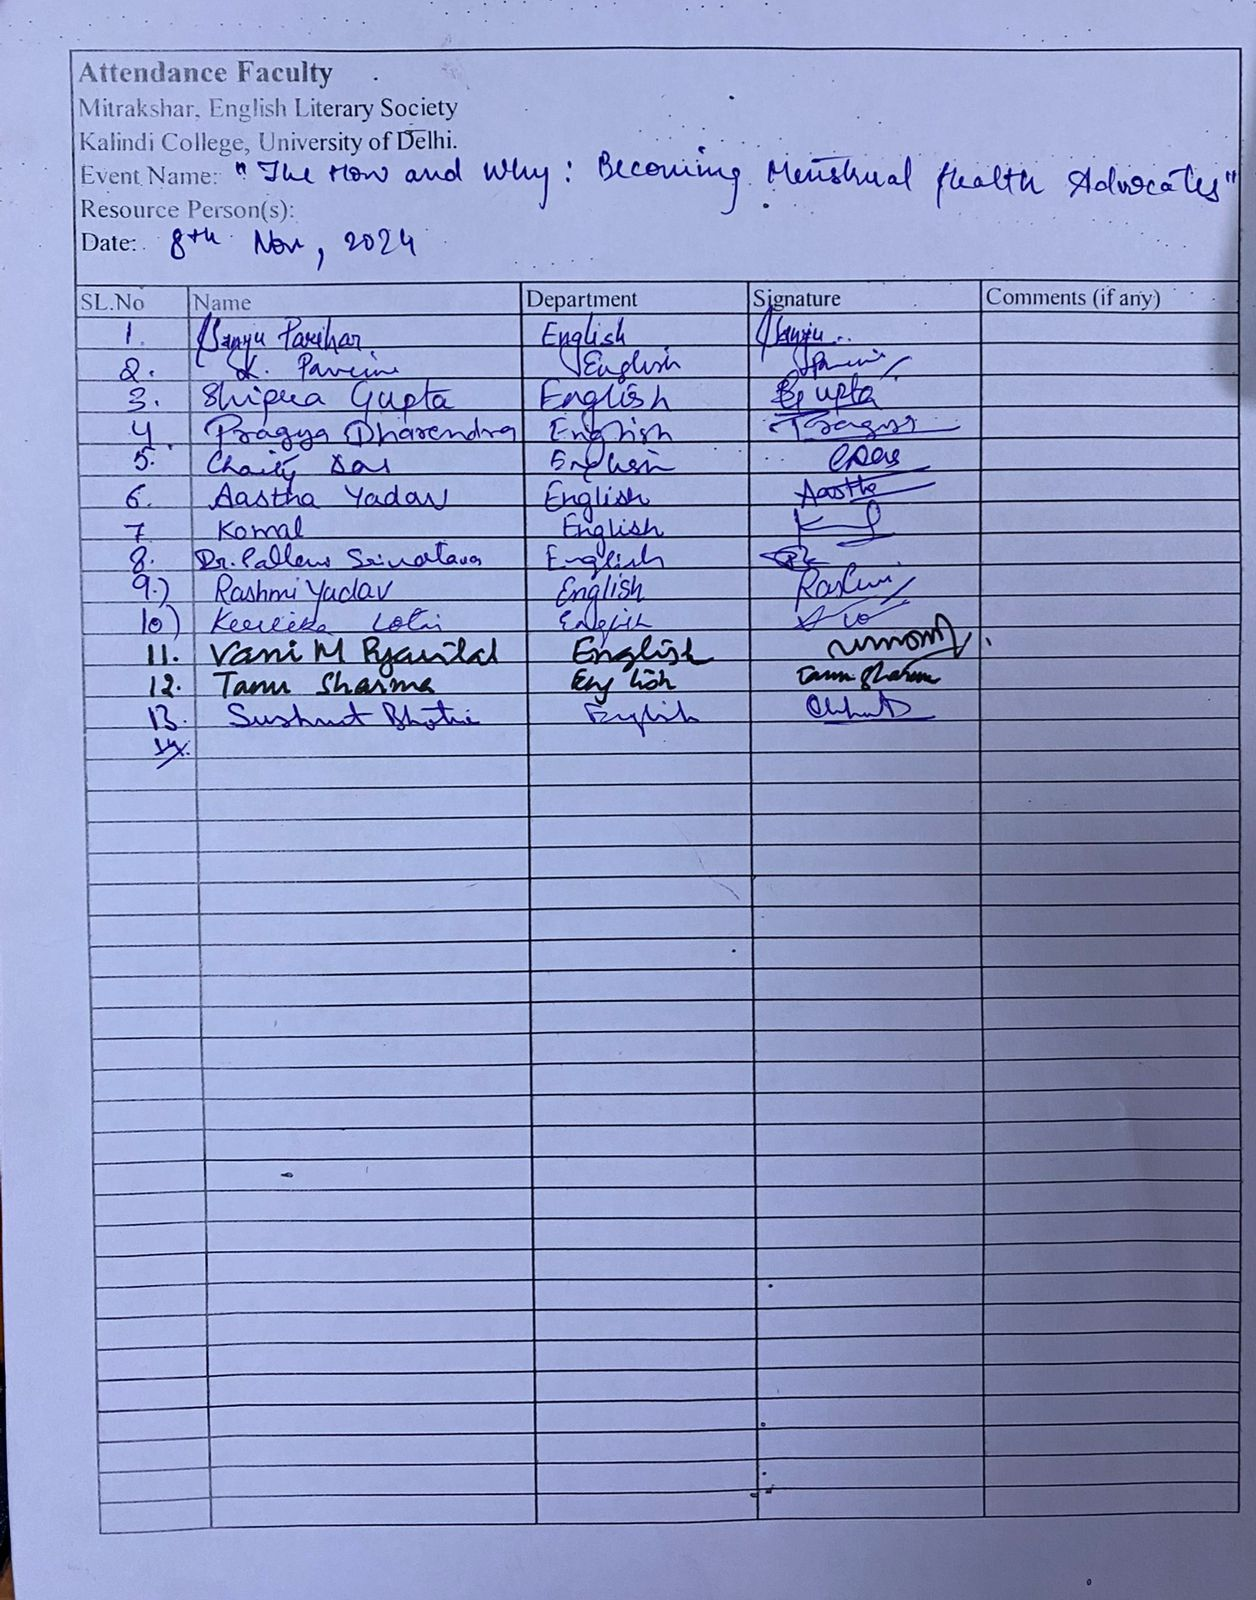 Attendance Faculty
Mitrakshar, English Literary Society
Kalindi College, University of Delhi.
Event Name: "The How and Why: Becoming Menstrual Health Advocates"
Resource Person(s):
Date: 8th Nov, 2024
SL.No Name Department Signature Comments (if any)
1. Parihar English
2. K. English
3. Shipra Gupta English Gupta
4. Pragya Dharendra English Pragya
5. Chaity Das English CDas
6. Aastha Yadav English Aastha
7 Komal English
8. Dr. Pallavi Srivastava English
9.) Rashmi Yadav English Rashmi
10) English
11. Vani M English
12. Tanu Sharma English Tanu Sharma
13. Sushrut English